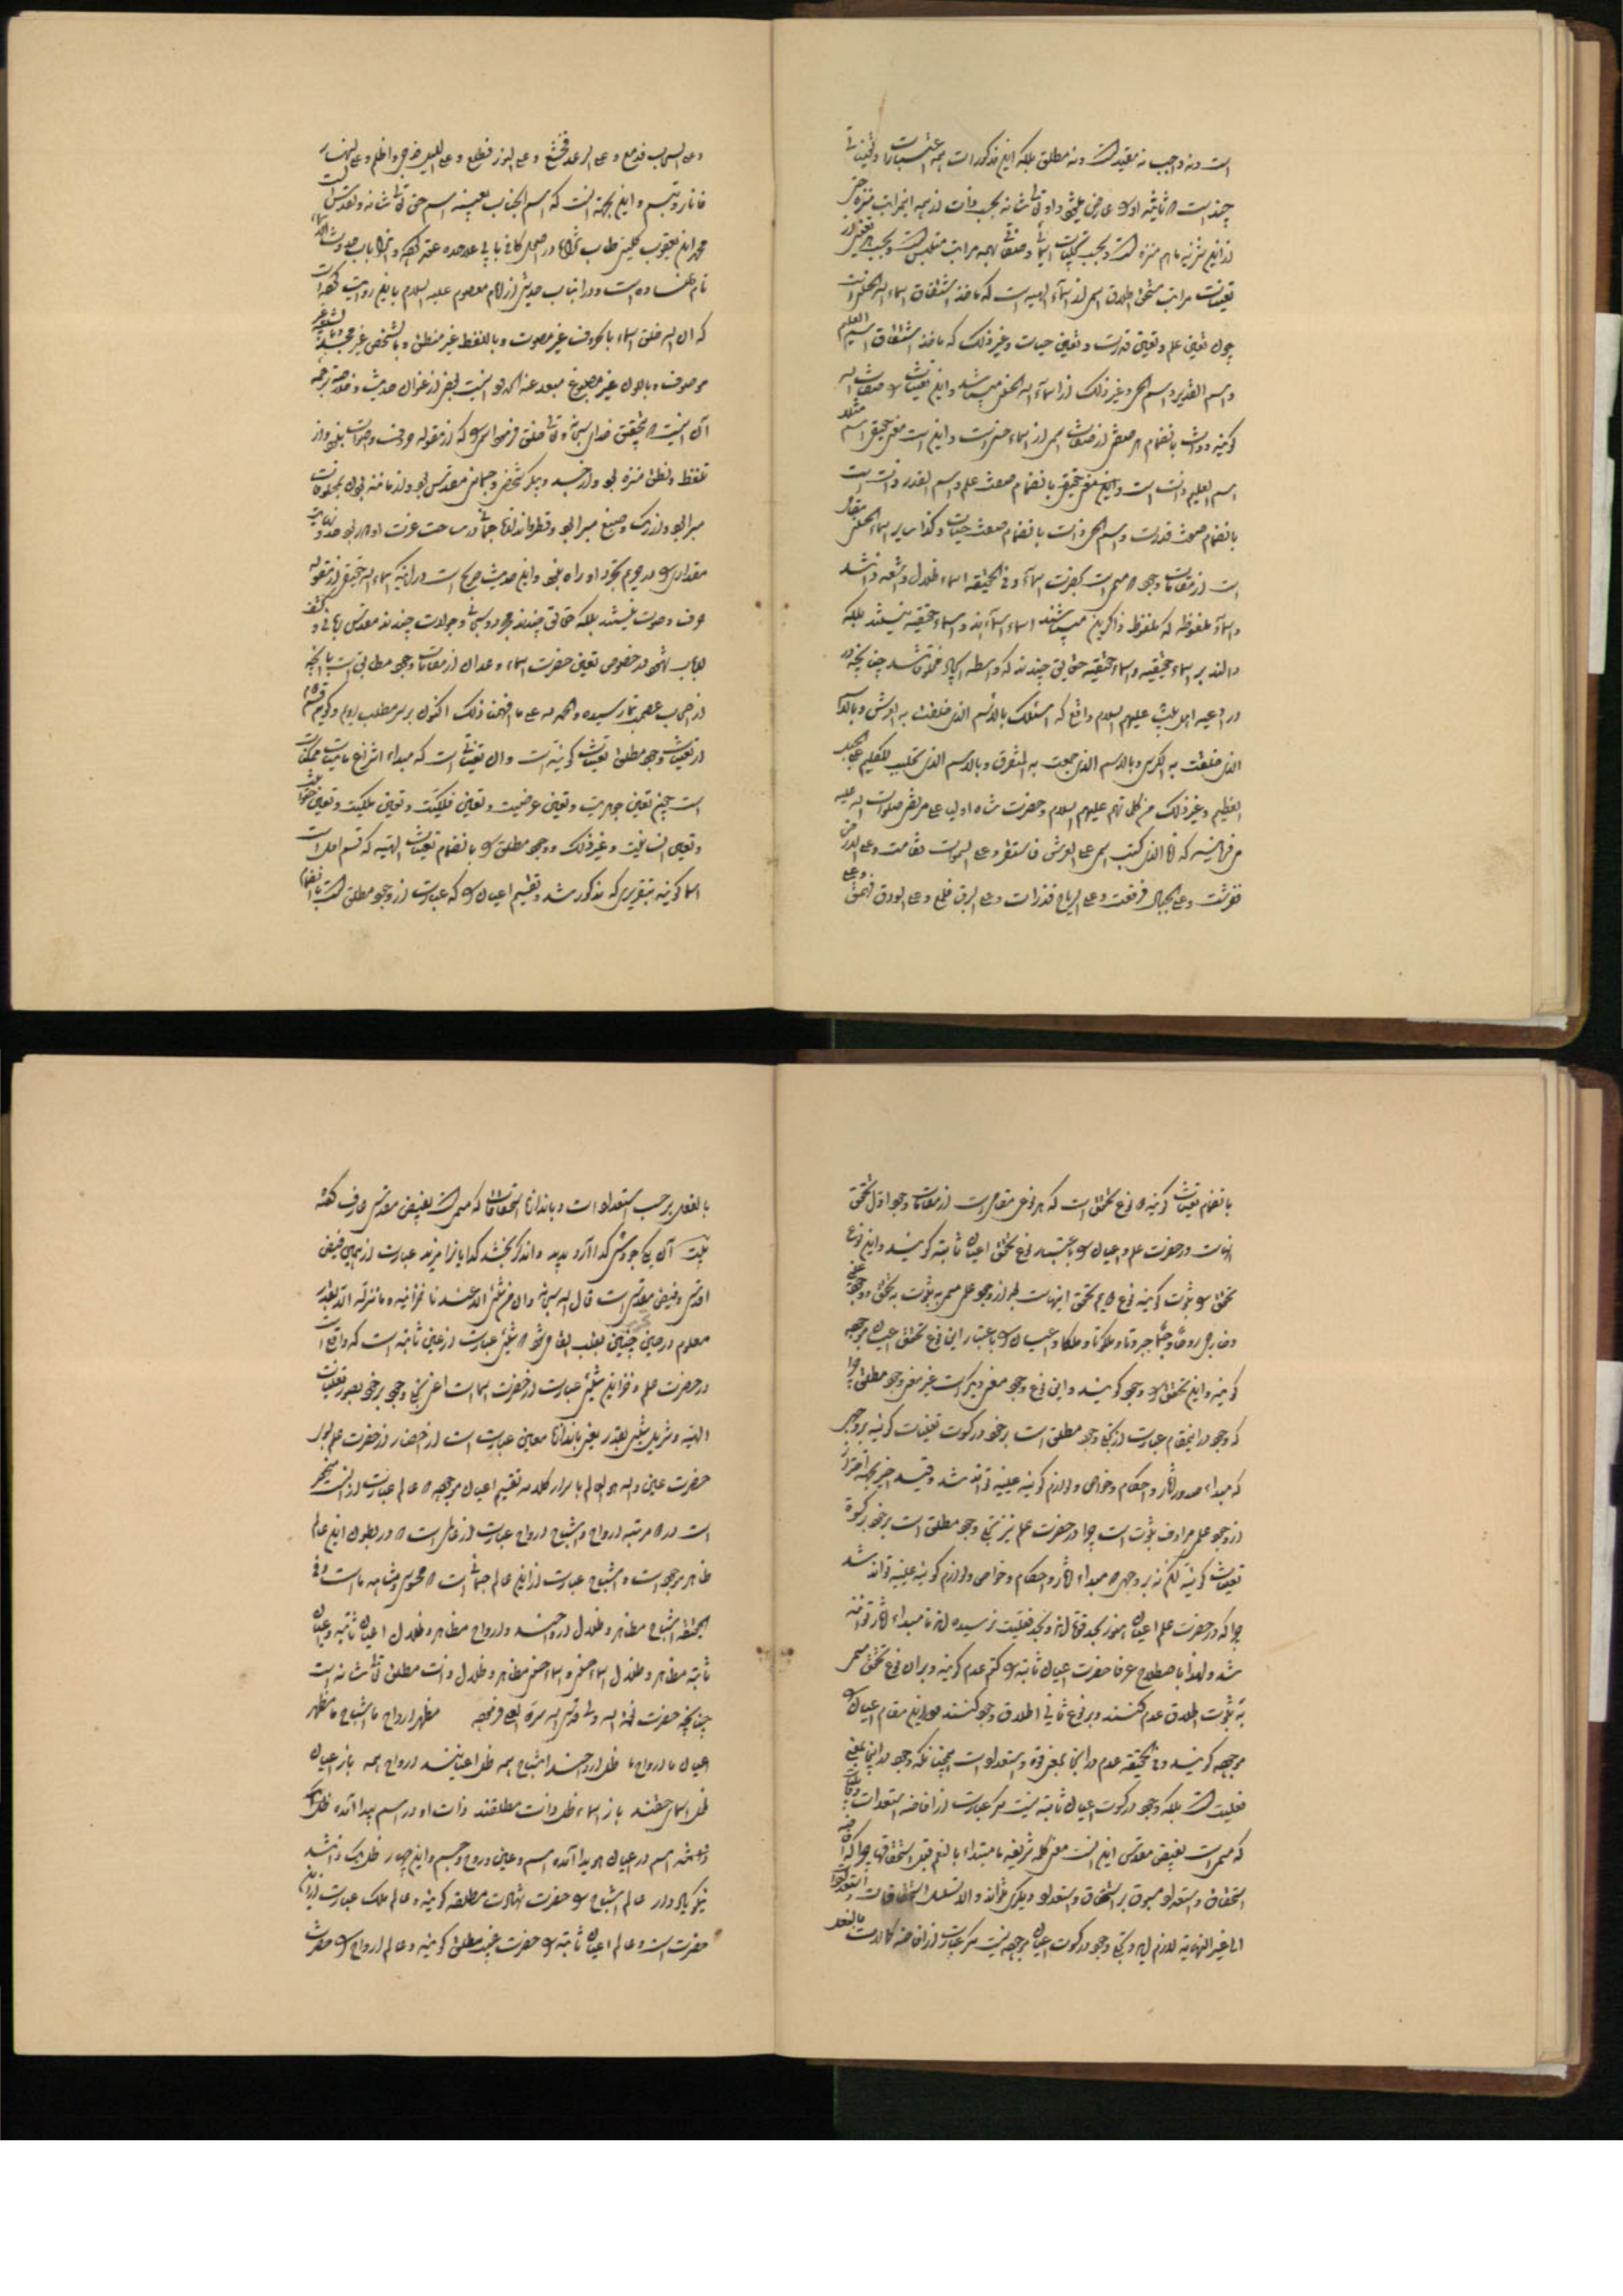 است و نه واجب نه مقید است و نه مطلق بلکه این مذکورات همه اعتبارات و تعینات
چند است که ثانیه او را عارض میشود و او تعالی شانه بحسب ذات از همه این مراتب منزه حتی
از این تنزیه ما هم منزه است و بحسب تجلیات اسمائی و صفاتی بهمه مراتب متلبس است و بحسب هر تعینی از
تعینات مراتب مستحق اطلاق اسمی از اسماء الهیه است که ماخذ اشتقاق اسماء الله الحسنی است
چون تعین علم و تعین قدرت و تعین حیات و غیر ذلک که ماخذ اشتقاق اسم العلیم
و اسم القدیر و اسم الحی و غیر ذلک از اسماء الله الحسنی میباشد و این تعینات را صفات الله
گویند و ذات بانضمام هر صفتی از صفات اسمی از اسماء حسنی است و این است معنی حقیقی اسم مثلا
اسم العلیم ذات است و این معنی حقیقی بانضمام صفت علم و اسم القدیر ذات است
بانضمام صفت قدرت و اسم الحی ذات بانضمام صفت حیات و کذا سایر اسماء الحسنی
است از مقامات وجود که مسمی است بحضرت اسماء و فی الحقیقه اسماء ظلال و اشعه ذاتند
و اسماء ملفوظه که ملفوظ ذاکرین میباشند اسماء اسماءاند و اسماء حقیقیه نیستند بلکه
دالند بر اسماء حقیقیه و اسماء حقیقیه حقایقی چندند که واسطه ایجاد مخلوقاتند چنانچه در
در ادعیه اهل بیت علیهم السلام واقع که اسئلک بالاسم الذی خلقت به العرش و بالاسم
الذی خلقت به الکرسی و بالاسم الذی جمعت به المتفرق و بالاسم الذی
العظیم و غیر ذلک من کلماتهم علیهم السلام و حضرت شاه اولیا علی مرتضی صلوات الله علیه
میفرماید که انا الذی کتب اسمی علی العرش فاستقر و علی السموات فقامت و علی الارض
ففرشت و علی الجبال فرفعت و علی الریاح فذرات و علی البرق فلمع و علی الودق فهمع
و علی السحاب فدمع و علی الرعد فخشع و علی النور فسطع و علی اللیل فدجی و اظلم و علی النهار
فانار و تبسم و این بجهت آنست که اسم آنجناب بعینه اسم حق تعالی شانه و تقدس است
محمد ابن یعقوب کلینی طاب ثراه در اصول کافی بابی علاحده عقد کرده و آنرا باب حدوث الاسماء
نام نهاده است و در آن باب حدیثی از امام معصوم علیه السلام باین روایت کرده است
که ان الله خلق اسماء بالحروف غیر مصوت و باللفظ غیر منطق و بالشخص غیر مجسد و بالتشبیه غیر
موصوف و باللون غیر مصبوغ مبعد عنه الحدود اینست بعضی از عنوان حدیث و خلاصه ترجمه
آن اینست که بتحقیق خدای سبحانه و تعالی خلق فرمود اسمی را که از مقوله حروف و اصوات نبود و از
تلفظ و نطق منزه بود و از جسد و پیکر شخصی و جسمانی مقدس بود و از مانند بودن بمخلوقات
مبرا بود و از رنگ و صبغ مبرا بود و قطر و اندازه جسمانی در ساحت عزت او دور بود و حد و نهایت
مقداری را در حریم تجرد او راه نبود و این حدیث صریح است در اینکه اسماء الله حقیقی از مقوله
حرف و صوت نیستند بلکه حقایقی چندند مجرد و سبحانی و جواهرات چندند مقدس ربانی و کشف
اولوالالباب شهود در خصوص تعین حضرت اسماء و عد آن از مقامات وجود مطابق است با آنچه
از اصحاب عصمت بما رسیده و الحمد لله علی ما الهمنا ذلک اکنون بر سر مطلب رویم و گوئیم قسم دوم
از تعینات وجود مطلق تعینات کونیه است و آن تعیناتی است که مبداء انتزاع ماهیات ممکنات
است چون تعین جوهریت و تعین عرضیت و تعین فلکیت و تعین ملکیت و تعین حیوانیت
و تعین انسانیت و غیر ذلک و وجود مطلق را بانضمام تعینات الهیه که قسم اول است
اسما گویند بتقریری که مذکور شد و تقسیم اعیان را که عبارت از وجود مطلق است بانضمام
بانضمام تعینات کونیه دو نوع تحقق است که هر نوعی مقامی است از مقامات وجود اول تحقق
آنهاست در حضرت علم و اعیان را باعتبار این نوع تحقق اعیان ثابته گویند و این نوع
تحقق را ثبوت گویند نوع دویم تحقق اینهاست بعد از وجود علمی مسمی به ثبوت به تحقق و وجود عینی
و خارجی روحا و جسما جبروتا و ملکوتا و ملکا و اعیان را باعتبار این نوع تحقق اعیان موجوده
گویند و این تحقق را وجود گویند و این نوع وجود معنی دیگر است غیر معنی وجود مطلق چرا
که وجود در اینمقام عبارت از تجلی وجود مطلق است بر خود در کسوت تعینات کونیه بر وجهی
که مبداء صدور آثار و احکام و خواص و لوازم کونیه عینیه تواند شد و قید اخیر بجهت احتراز
از وجود علمی مرادف ثبوت است چرا در حضرت علم نیز تجلی وجود مطلق است بر خود در کسوة
تعینات کونیه لکن نه بر وجهی که مبداء آثار و احکام و خواص و لوازم کونیه عینیه تواند شد
چرا که در حضرت علم اعیان هنوز بحد قوتاند و بحد فعلیت نرسیدهاند تا مبداء آثار توانند
شد و لهذا باصطلاح عرفا حضرت اعیان ثابته را کتم عدم گویند و بر آن نوع تحقق مسمی
به ثبوت اطلاق عدم کنند و بر نوع ثانی اطلاق وجود کنند و در این مقام اعیان را
موجوده گویند و فی الحقیقه عدم در اینجا بمعنی قوة و استعداد است همچنانکه وجود در اینجا بمعنی
فعلیت است بلکه وجود در کسوت اعیان ثابته نیست مگر عبارت از افاضه استعدادات و قابلیات
که مسمی است بفیض اقدس این است معنی کلمه شریفه یا مبتداء بالنعم قبل استحقاقها چرا که افاضه
استحقاق و استعداد مسبوق بر استحقاق و استعداد دیگری نتواند و الا تسلسل استحقاقات و استعدادات
الی غیر النهایه لازم آید و تجلی وجود در کسوت اعیان موجوده نیست مگر عبارت از افاضه کمالات بالفعل
بالفعل بر حسب استعدادات و باندازه استحقاقات که مسمی است بفیض مقدس عارف گفته
بیت آن یکی جودش گدا آرد پدید و اندگر بخشد گدایان را مزید عبارت از همین فیض
اقدس و فیض مقدس است قال الله سبحانه و ان من شئ الا عندنا خزائنه و ما ننزله الا بقدر
معلوم در حین چنین بقلب القا میشود که شئ عبارت از عین ثابته است که واقع است
در حضرت علم و خزاین شئ عبارت از حضرت اسما است اعنی تجلی وجود بر خود بصور تعینات
الهیه و تنزیل شئ بقدر یعنی باندازه معین عبارت است از احضار از حضرت علم بر
حضرت عین و الله هو العالم باسرار کلامه تقسیم اعیان موجوده دو عالم عبارت از آنست منحصر
است در دو مرتبه ارواح و اشباح ارواح عبارت از عالمی است که در بطون این عالم
ظاهر موجود است و اشباح عبارت از این عالم جسمانی است که محسوس و مشاهد ما است و فی
الحقیقه اشباح مظاهر و ظلال ارواحند و ارواح مظاهر و ظلال اعیان ثابته و اعیان
ثابته مظاهر و ظلال اسماء حسنی و اسماء حسنی مظاهر و ظلال ذات مطلق تعالی شانه است
چنانچه حضرت نعمة الله ولی قدس الله سره العزیز فرموده مظهر ارواح ما اشباح ما مظهر
اعیان ما ارواح ما ظل ارواحند اشباح همه ظل اعیانند ارواح همه باز اعیان
ظل اسمای حقند باز اسماء ظل ذات مطلقند ذات او در اسم پیدا آمده ظل
اسم در اعیان هویدا آمده اسم و عین و روح و جسم و این چهار ظل یک ذاتند
نیکو یاد دار عالم اشباح را حضرت شهادت مطلقه گویند و عالم ملک عبارت از این
حضرت است و عالم اعیان ثابته را حضرت غیب مطلق گویند و عالم ارواح را حضرت